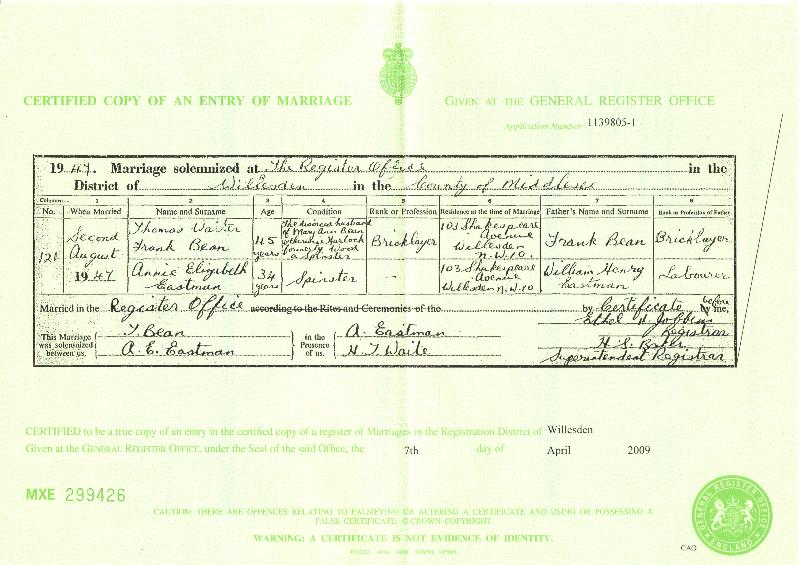 CERTIFIED COPY OF AN ENTRY OF MARRIAGE
GIVEN AT THE GENERAL REGISTER OFFICE
Application Number 1139805-1
1947. Marriage solemnized at The Register Office in the
District of Willesden in the County of Middlesex
Columns:- 1 2 3 4 5 6 7 8
No. When Married Name and Surname Age Condition Rank or Profession Residence at the time of Marriage Father's Name and Surname Rank or Profession of Father
121 Second August 1947
Thomas Walter Frank Bean
45 years
The divorced husband of Mary Ann Bean otherwise Harlock formerly Wood a Spinster
Bricklayer
103 Shakespeare Avenue Willesden N.W.10.
Frank Bean
Bricklayer
Annie Elizabeth Eastman
34 years
Spinster
-
103 Shakespeare Avenue Willesden N.W.10
William Henry Eastman
Labourer
Married in the Register Office according to the Rites and Ceremonies of the by Certificate before by me,
This Marriage was solemnized between us,
T. Bean
A. E. Eastman
in the Presence of us,
A. Eastman
H. T. Waite
Ethel
Registrar
H. S.
Superintendent Registrar
CERTIFIED to be a true copy of an entry in the certified copy of a register of Marriages in the Registration District of Willesden
Given at the GENERAL REGISTER OFFICE, under the Seal of the said Office, the 7th day of April 2009
MXE 299426
CAUTION: THERE ARE OFFENCES RELATING TO FALSIFYING OR ALTERING A CERTIFICATE AND USING OR POSSESSING A
FALSE CERTIFICATE. © CROWN COPYRIGHT
WARNING: A CERTIFICATE IS NOT EVIDENCE OF IDENTITY.
GENERAL REGISTER OFFICE
ENGLAND
CAO